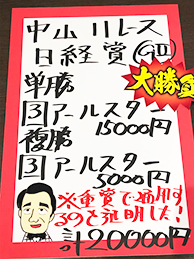 中山11レース
日経賞(GⅡ)
大勝負
単勝
3アールスター
15000円
複勝
3アールスター
5000円
※重賞で通用す
るのを証明した!
計20000円